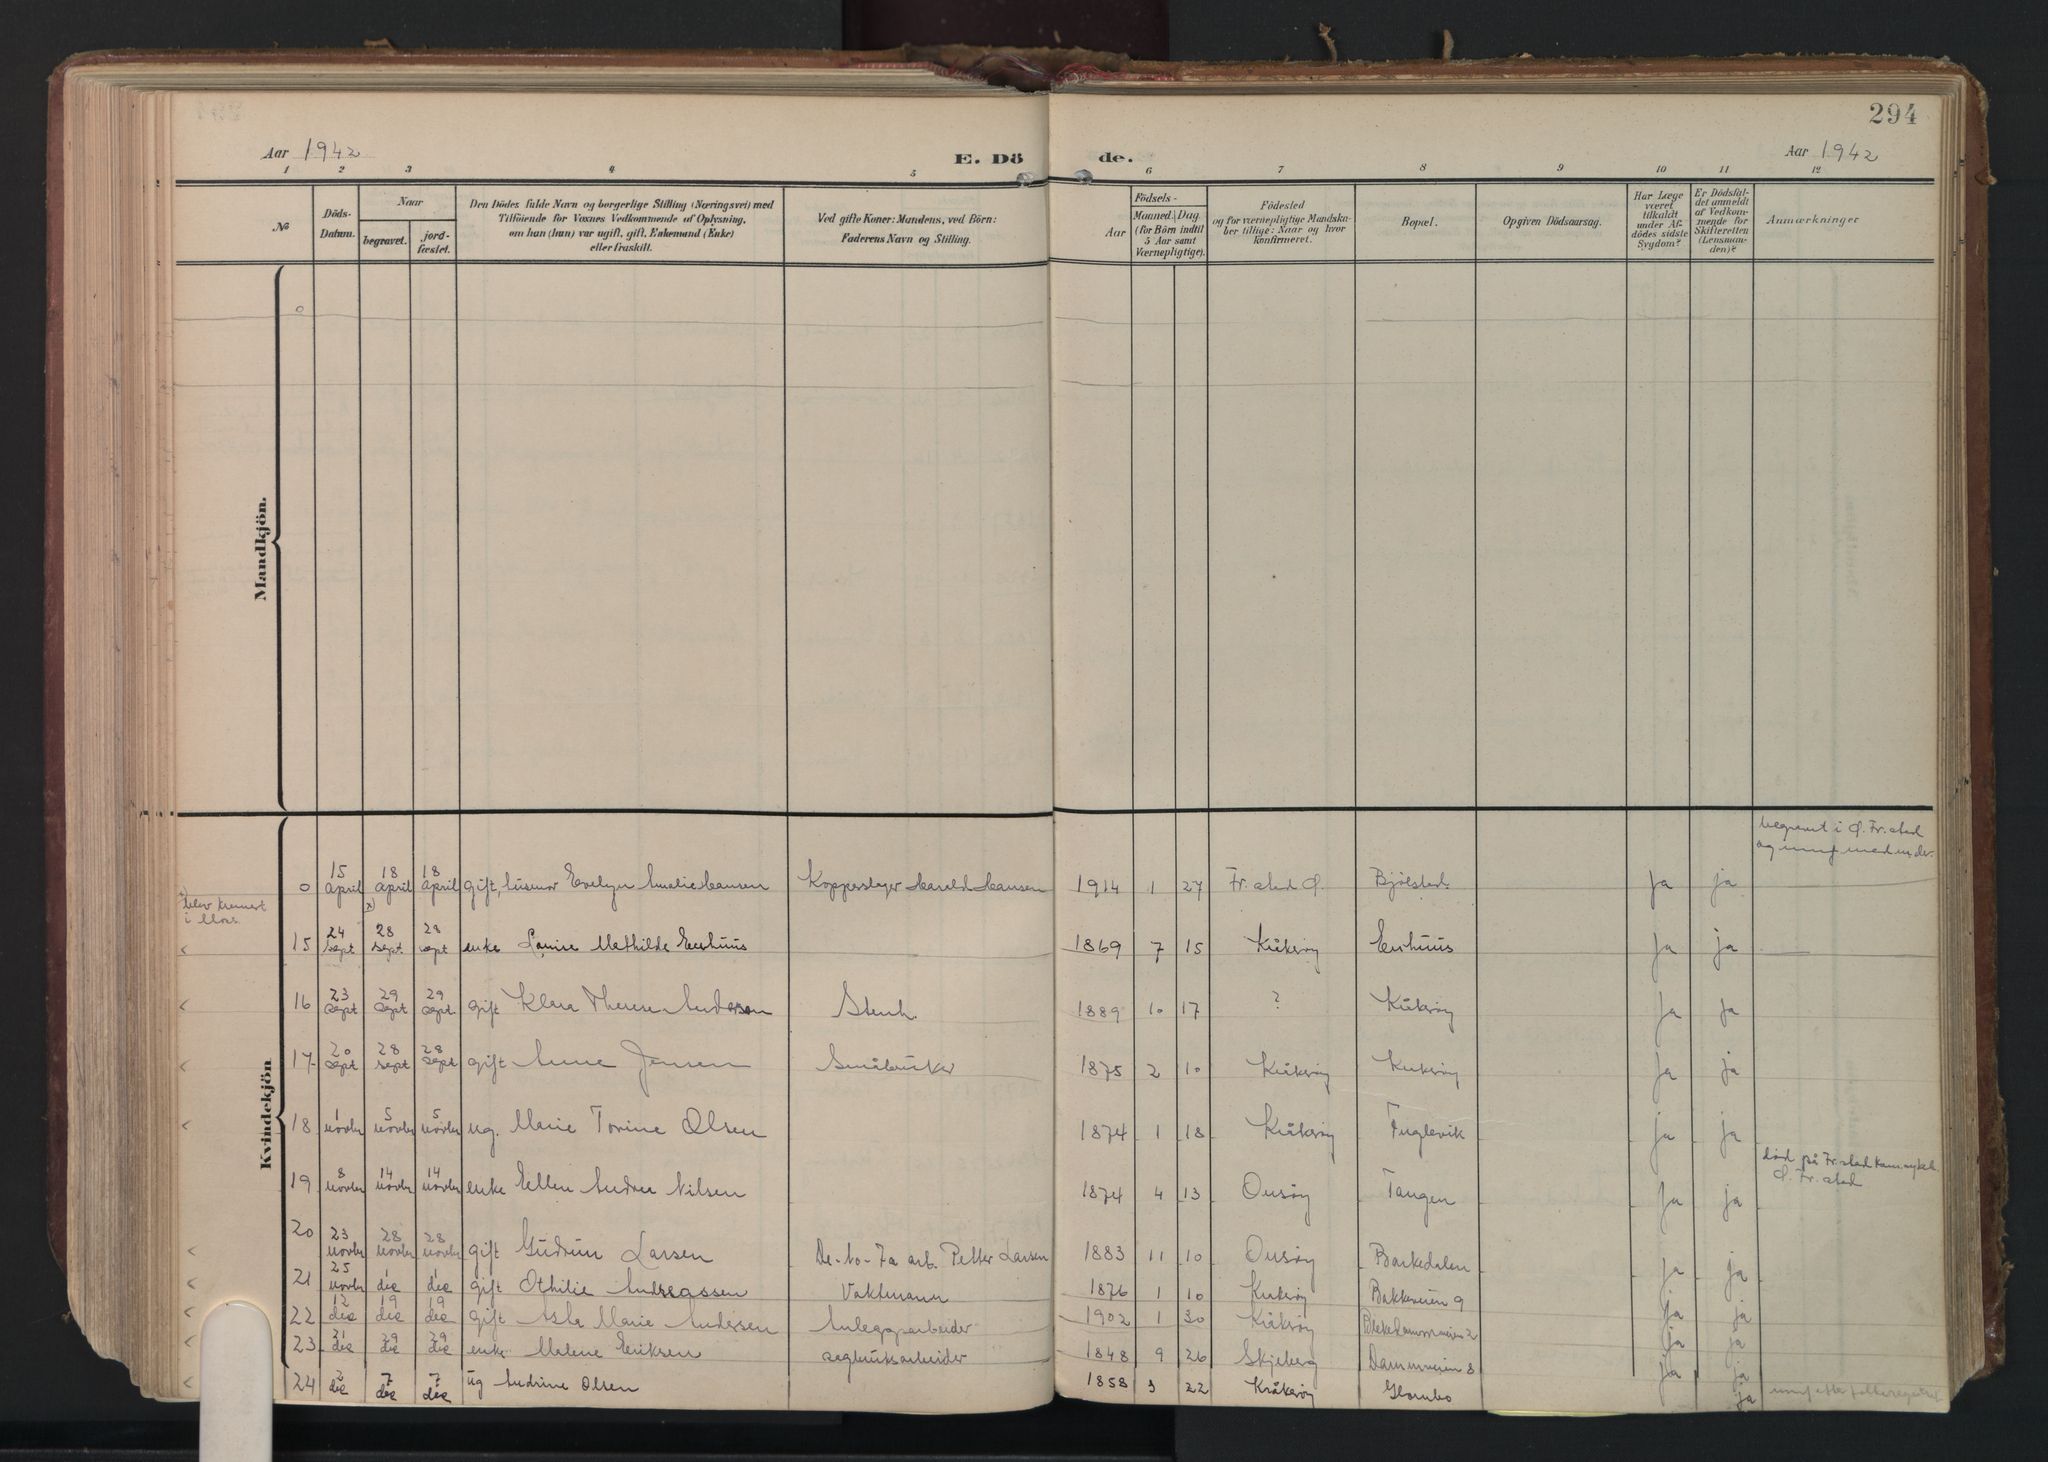 294
Aar 1942
E. Döde.
Aar 1942
1 2 3 4 5 6 7 8 9 10 11 12
No
Döds-Datum.
Naar
begravet.
jord-fæstet.
Den Dödes fulde Navn og borgerlige Stilling (Næringsvei) med
Tilföiende for Voxnes Vedkommende af Oplysning,
om han (hun) var ugift, gift, Enkemand (Enke)
eller fraskilt.
Ved gifte Koner: Mandens, ved Börn:
Faderens Navn og Stilling.
Födsels-
Aar
Maaned. Dag.
(for Börn indtil
5 Aar samt
Værnepligtige).
Födested
og for værnepligtige Mandskaber tillige: Naar og hvor
konfirmeret.
Bopæl.
Opgiven Dödsaarsag.
Har Læge
været
tilkaldt
under Afdödes sidste
Sygdom?
Er Dödsfaldet anmeldt
af Vedkommende for
Skifteretten
(Lensmanden)?
Anmærkninger
Mandkjön.
0
Kvindekjön
begravet i Ø. Fr.stad
0 15 april 18 april 18 april gift, husmor Evelyn Amalie Hansen Kopperslager Harald Hansen 1914 1 27 Fr.stad Ø. Bjølstad. ja ja
x) blev kremert
i Moss
15 24 sept 28 sept. 28 sept enke Louise Mathilde Enhuus 1869 7 15 Kråkerøy Enhuus ja ja
16 23 sept 29 sept 29 sept. gift Klara Therese Andersen Stenh. 1889 10 17 ? Kråkerøy ja ja
17 20 sept 28 sept 28 sept gift Anne Jensen Småbruker 1875 2 10 Kråkerøy Kråkerøy ja ja
18 1 novbr 5 novbr 5 novbr ug. Marie Torine Olsen 1874 1 18 Kråkerøy Fuglevik ja ja
19 8 novbr 14 novbr 14 novbr enke Ellen Andrea Nilsen 1874 4 13 Onsøy Tangen ja ja død på Fr.stad
Ø. Fr.stad
20 23 novbr 28 novbr 28 novbr gift Gudrun Larsen De-No-Fa arb. Petter Larsen 1883 11 10 Onsøy Barkedalen ja ja
21 25 novbr 1 dec 1 dec gift Othilie Andreassen Vaktmann 1876 1 10 Kråkerøy Bakkeveien 9 ja ja
22 12 dec 19 dec 19 dec gift Asta Marie Andersen Anleggsarbeider 1902 1 30 Kråkerøy ja ja
23 21 dec 29 dec 29 dec enke Malene Eriksen 1848 9 26 Skjeberg Dammveien 8 ja ja
24 2 dec 7 dec 7 dec ug Andrine Olsen 1858 3 22 Kråkerøy Glombo ja